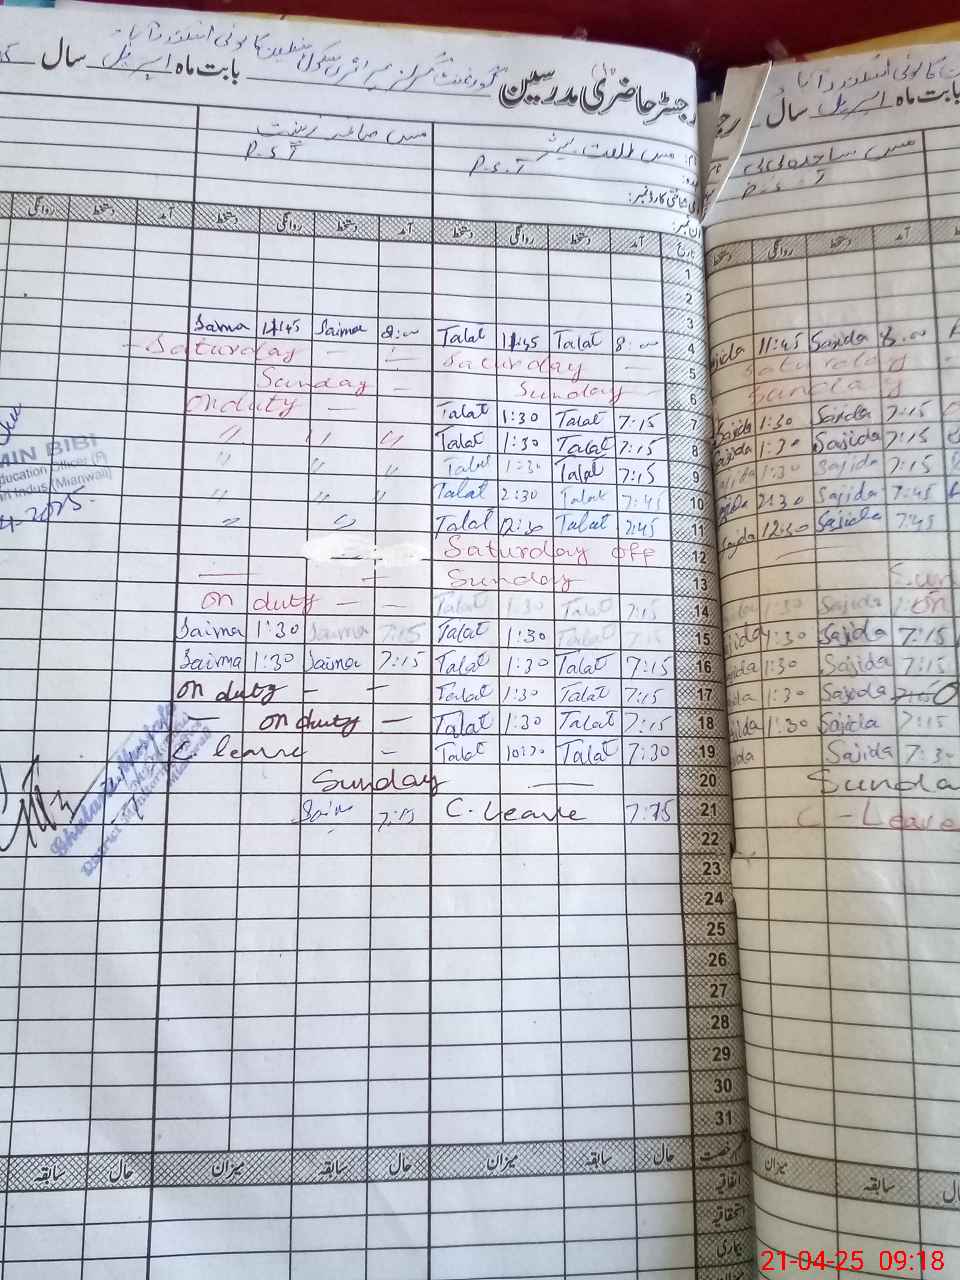 رجسٹر حاضری مدرسین گورنمنٹ گرلز پرائمری سکول بابت ماہ اپریل سال
بابت ماہ اپریل سال
مس طلعت
P.S.T
مس صائمہ زینت
P.S.T
مس ساجدہ بی بی
P.S.T
شناختی کارڈ نمبر:
تاریخ آمد دستخط روانگی دستخط آمد دستخط روانگی دستخط آمد دستخط روانگی
آمد دستخط روانگی دستخط
1
2
3
Saima 11:45 Saima 8:00 Talat 11:45 Talat 8:00 4 Sajida 11:45 Sajida 8:00
Saturday — — Saturday — 5 Saturday
Sunday — Sunday — 6 Sunday
On duty — Talat 1:30 Talat 7:15 7 Sajida 1:30 Sajida 7:15
" " " Talat 1:30 Talat 7:15 8 Sajida 1:30 Sajida 7:15
" " " Talat 1:30 Talat 7:15 9 1:30 Sajida 7:15
" " " Talat 2:30 Talat 7:45 10 2:30 Sajida 7:45
" " Talat 12:30 Talat 7:45 11 Sajida 12:30 Sajida 7:45
Saturday off 12
— — Sunday 13 Sun
On duty — — Talat 1:30 Talat 7:15 14 1:30 Sajida 7:15
Saima 1:30 Saima 7:15 Talat 1:30 Talat 7:15 15 1:30 Sajida 7:15
Saima 1:30 Saima 7:15 Talat 1:30 Talat 7:15 16 1:30 Sajida 7:15
On duty — — Talat 1:30 Talat 7:15 17 1:30 Sajida
— On duty — Talat 1:30 Talat 7:15 18 1:30 Sajida 7:15
C leave — Talat 10:30 Talat 7:30 19 Sajida 7:30
Sunday — 20 Sunda
7:15 C. Leave 7:15 21 C - Leave
22
23
24
25
26
27
28
29
30
31
رخصت حال سابقہ میزان حال سابقہ میزان حال سابقہ
میزان سابقہ حال
اتفاقیہ
استحقاقیہ
بیماری
MIN BIBI
ducation Officer (F)
Indus (Mianwali)
2025
21-04-25 09:18